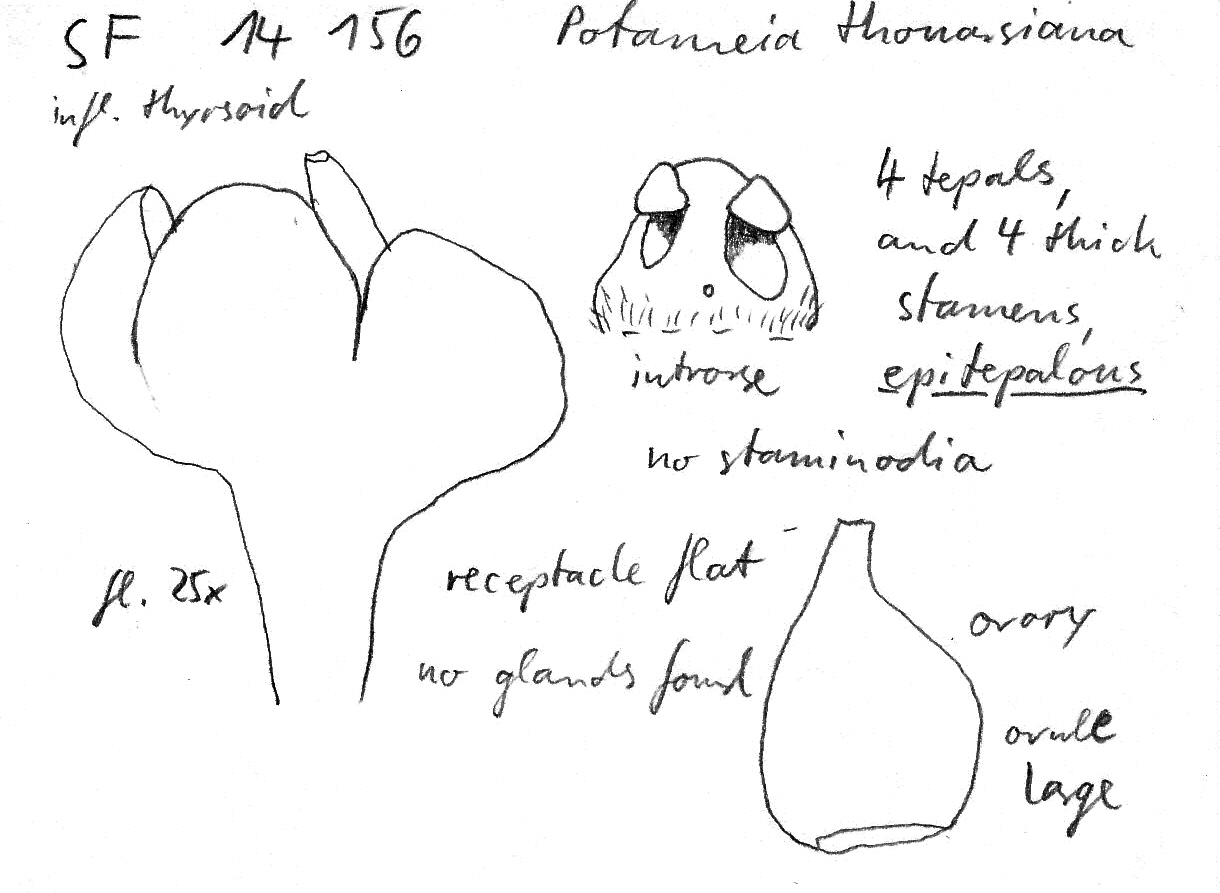 SF 14 156 Potameia thouarsiana
infl. thyrsoid
4 tepals,
and 4 thick
stamens,
epitepalous
introrse
no staminodia
fl. 25x
receptacle flat
no glands found
ovary
ovule
large